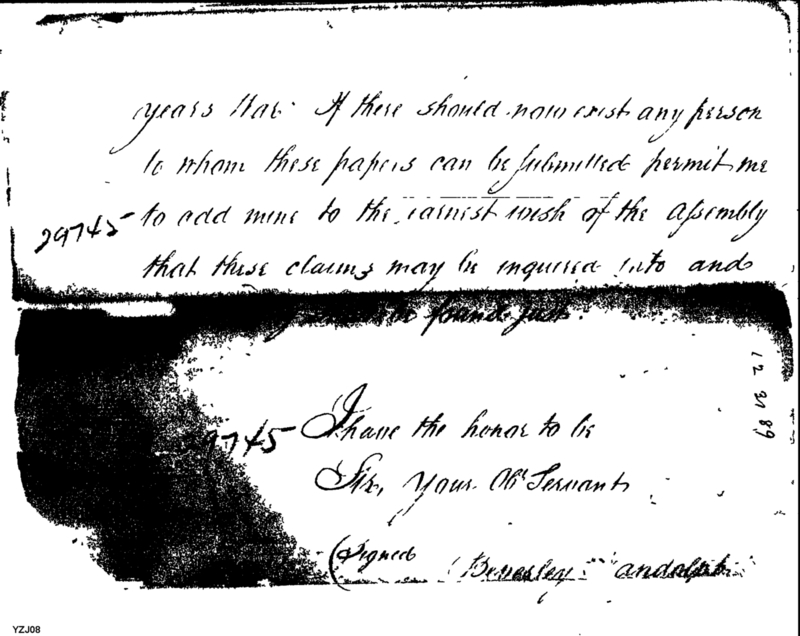 years War. If there should now exist any person
to whom these papers can be submitted permit me
29745 to add mine to the earnest wish of the Assembly
that these claims may be inquired into and
found just.
9745 I have the honor to be
Sir, Your Obt Servant
(Signed Beverley andolph
12 31 89
YZJ08